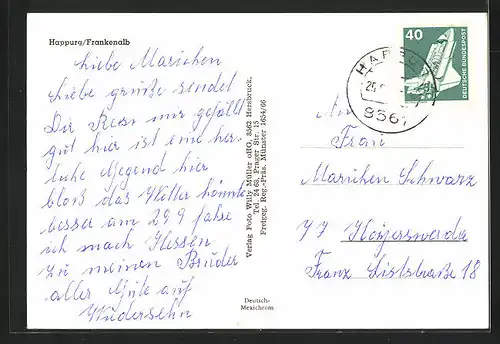 Happurg/Frankenalb
liebe Mariehen
Liebe grüße sendet
Dir Rosa mir gefällt
gut hier ist eine herr-
liche Gegend hier
bloß das Wetter könnte
besser am 29 9 fahre
ich nach Hessen
zu meinen Bruder
alles Gute auf
Widersehn
Verlag Foto Willy Müller oHG, 8562 Hersbruck,
Tel. 24 68, Prager Str. 15
Freigeg. Reg.-Präs. Münster 1654/66
Deutsch-
Mexichrom
40
DEUTSCHE BUNDESPOST
HAPPURG
8561
An
Frau
Mariehen Schwarz
77 Hoyerswerda
Franz Liststraße 18